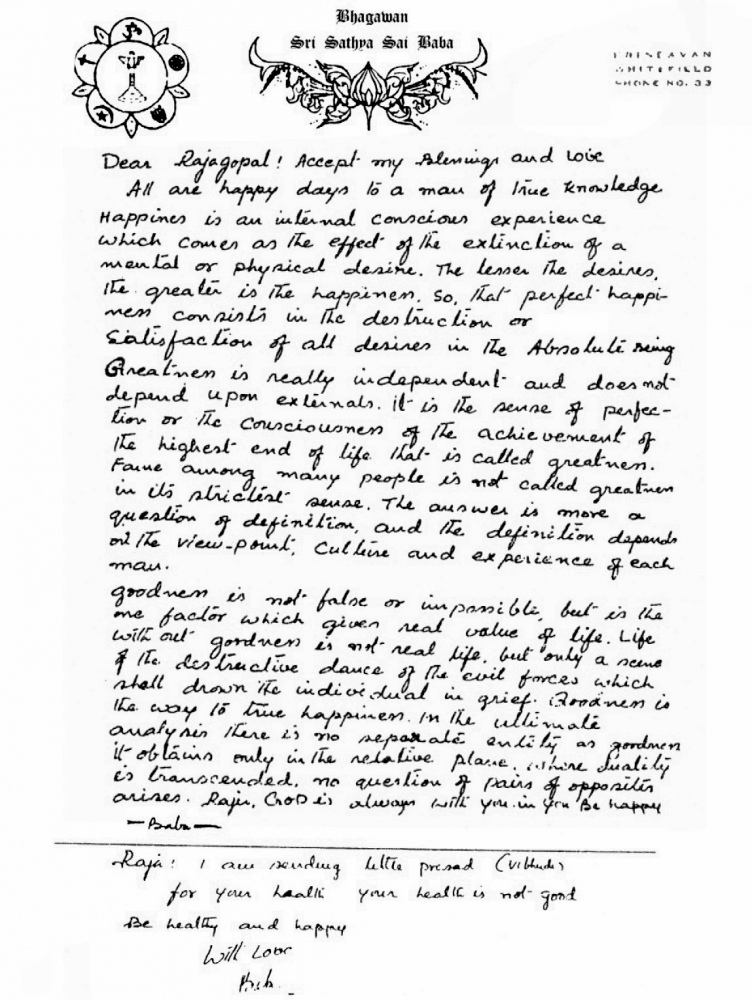 Bhagawan
Sri Sathya Sai Baba
BRINDAVAN
WHITEFIELD
PHONE NO. 33
Dear Rajagopal! Accept my Blessings and love
All are happy days to a man of true knowledge
Happiness is an internal conscious experience
which comes as the effect of the extinction of a
mental or physical desire. The lesser the desires,
the greater is the happiness. So, that perfect happi-
ness consists in the destruction or
Satisfaction of all desires in the Absolute Being
Greatness is really independent and does not
depend upon externals. it is the sense of perfec-
tion or the consciousness of the achievement of
the highest end of life that is called greatness.
Fame among many people is not called greatness
in its strictest sense. The answer is more a
question of definition, and the definition depends
on the view-point, culture and experience of each
man.
goodness is not false or impossible, but is the
one factor which gives real value of life. Life
with out goodness is not real life, but only a scene
of the destructive dance of the evil forces which
shall drown the individual in grief. Goodness is
the way to true happiness. In the ultimate
analysis there is no separate entity as goodness
it obtains only in the relative plane. where duality
is transcended, no question of pairs of opposites
arises. Raju, God is always with you. in you Be happy
— Baba —
Raja! I am sending little prasad (vibhudi)
for your health your health is not good
Be healthy and happy
With Love
Baba